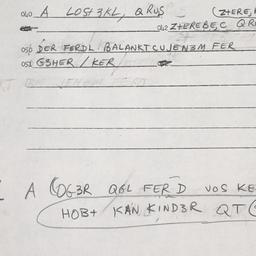 040 A LOSt3KL, QRUS (Z+ERE,
042 Z+EREBE,C QR
050 DER FERDL BALANKTCUJEN3M FER
051 G3HER / KER
A LOG3R QGL FERD VOS KE
HOB+ KAN KIND3R QT